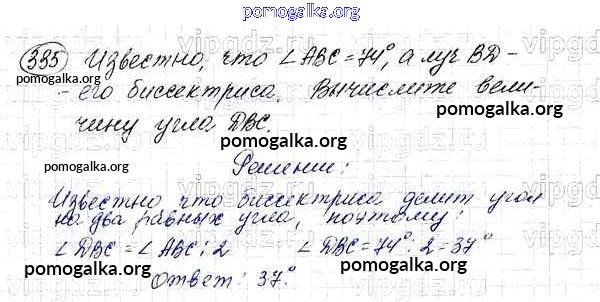 pomogalka.org
335 Известно, что ∠ABC=74°, а луч BD-
- его биссектриса. Вычислите вели-
pomogalka.org pomogalka.org
чину угла DBC.
pomogalka.org
pomogalka.org
Решение:
Известно что биссектриса делит угол
pomogalka.org
на два равных угла, поэтому:
∠DBC = ∠ABC : 2 ∠DBC = 74° : 2 = 37°
pomogalka.org pomogalka.org
Ответ: 37°.